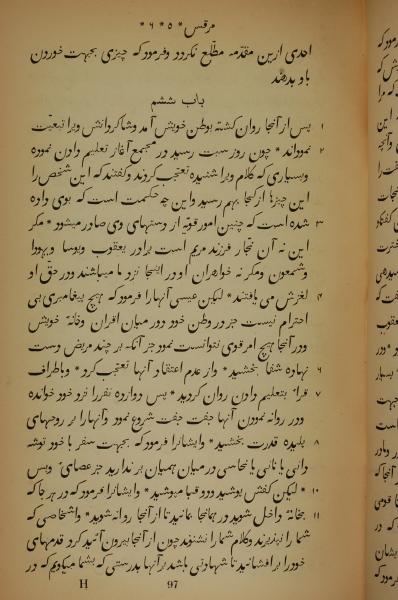 مرقس * ٥ * ٦ *
احدی ازین مقدّمه مطّلع نکردد وفرمود که چیزی بجهت خوردن
باو بدهند
باب ششم
١ پس از آنجا روان کشته بوطن خویش آمد وشاکردانش ویرا تبعیّت
٢ نمودند * چون روز سبت رسید در مجمع آغاز تعلیم دادن نموده
وبسیاری که کلام ویرا شنیده تعجّب کردند وکفتند که این شخص را
این چیزها از کجا بهم رسید واین چه حکمت است که بوی داده
٣ شده است که چنین امور قویّه از دستهای وی صادر میشود * مکر
این نه آن نجّار فرزند مریم است برادر یعقوب ویوسا ویهودا
وشمعون ومکر نه خواهران او در اینجا نزد ما میباشند ودر حقّ او
٤ لغزش می یافتند * لیکن عیسی آنها را فرمود که هیچ پیغامبری بی
احترام نیست جز در وطن خود ودر میان اقران وخانهٔ خویش
٥ ودر آنجا هیچ امر قوی نتوانست نمود جز آنکه بر چند مریض دست
٦ نهاده شفا بخشید * واز عدم اعتقاد آنها تعجّب کرد * وباطراف
٧ قرا بتعلیم دادن روان کردید * پس دوازده نفر را نزد خود خوانده
ودر روانه نمودن آنها جفت جفت شروع نمود وآنها را بر روحهای
٨ پلیده قدرت بخشید * وایشانرا فرمود که بجهت سفر با خود توشه
دانی یا نانی یا نحاسی در میان همیان بر ندارید جز عصای وبس
١٠ * لیکن کفش پوشید ودو قبا مپوشید * وایشانرا فرمود که در هر جا که
١١ بخانهٔ داخل شوید در همانجا بمانید تا از آنجا روانه شوید * واشخاصی که
شما را نپذیرند وکلام شما را نشنوند چون از آنجا بیرون آئید کرد قدمهای
خود را بر افشانید تا شهادتی باشد بر آنها بدرستی که بشما میکویم که در
H 97